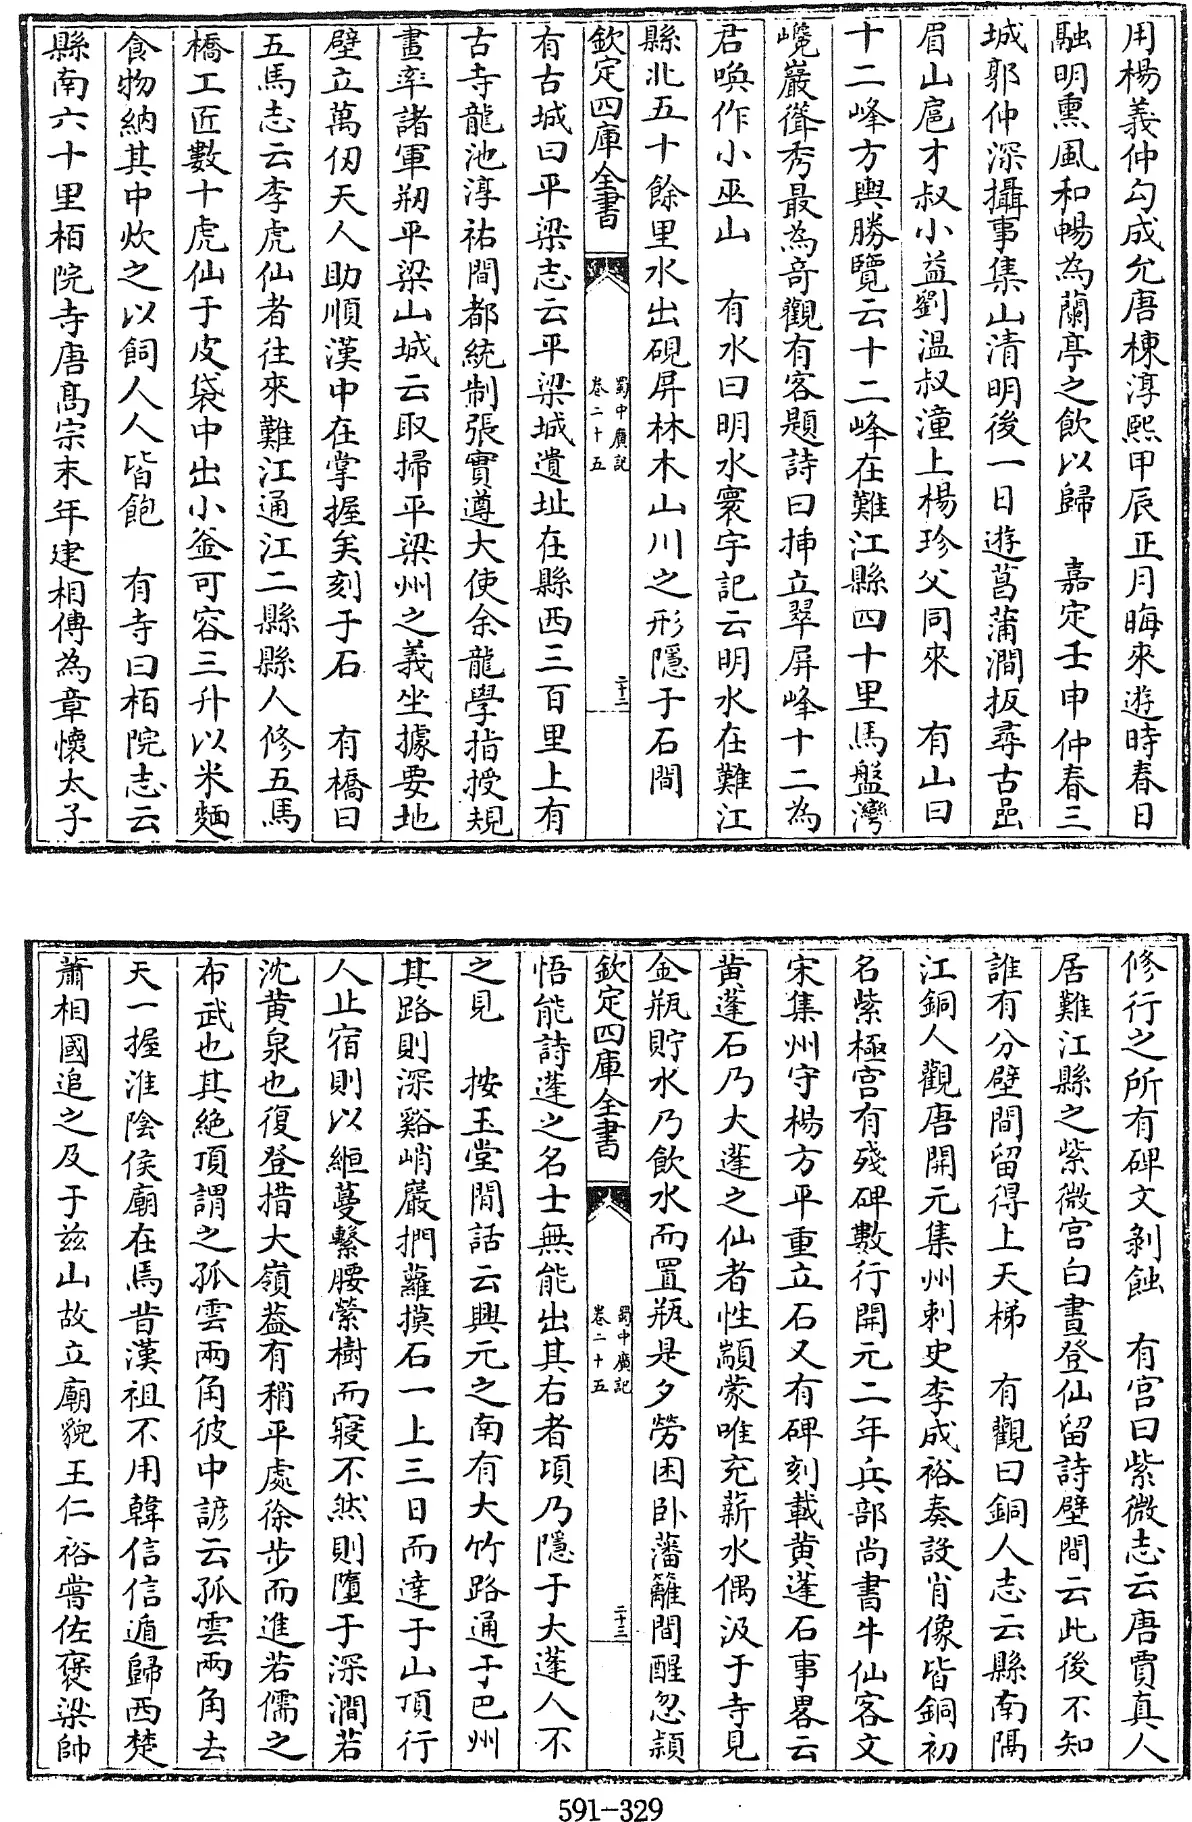 用楊義仲勾成允唐棟淳熙甲辰正月晦來遊時春日
融明熏風和暢為蘭亭之飲以歸　嘉定壬申仲春三
城郭仲深攝事集山清明後一日遊菖蒲澗扳尋古邑
眉山扈才叔小益劉溫叔潼上楊珍父同來　有山曰
十二峰方輿勝覽云十二峰在難江縣四十里馬盤灣
巉巖聳秀最為奇觀有客題詩曰揷立翠屏峰十二為
君喚作小巫山　有水曰明水寰宇記云明水在難江
縣北五十餘里水出硯屏林木山川之形隱于石間
欽定四庫全書
蜀中廣記
卷二十五
二十二
有古城曰平梁志云平梁城遺址在縣西三百里上有
古寺龍池淳祐間都統制張實遵大使余龍學指授規
畫率諸軍剏平梁山城云取掃平梁州之義坐據要地
壁立萬仞天人助順漢中在掌握矣刻于石　有橋曰
五馬志云李虎仙者往來難江通江二縣縣人修五馬
橋工匠數十虎仙于皮袋中出小釜可容三升以米麵
食物納其中炊之以飼人人皆飽　有寺曰栢院志云
縣南六十里栢院寺唐高宗末年建相傳為章懷太子
修行之所有碑文剝蝕　有宮曰紫微志云唐賈真人
居難江縣之紫微宮白晝登仙留詩壁間云此後不知
誰有分壁間留得上天梯　有觀曰銅人志云縣南隅
江銅人觀唐開元集州刺史李成裕奏設肖像皆銅初
名紫極宮有殘碑數行開元二年兵部尚書牛仙客文
宋集州守楊方平重立石又有碑刻載黄蓬石事畧云
黄蓬石乃大蓬之仙者性顓蒙唯充薪水偶汲于寺見
金瓶貯水乃飲水而置瓶是夕勞困卧藩籬間醒忽頴
欽定四庫全書
蜀中廣記
卷二十五
二十三
悟能詩蓬之名士無能出其右者頃乃隱于大蓬人不
之見　按玉堂閒話云興元之南有大竹路通于巴州
其路則深谿峭巖捫蘿摸石一上三日而達于山頂行
人止宿則以絙蔓繫腰縈樹而寢不然則墮于深澗若
沈黄泉也復登措大嶺葢有稍平處徐步而進若儒之
布武也其絶頂謂之孤雲兩角彼中諺云孤雲兩角去
天一握淮陰侯廟在焉昔漢祖不用韓信信遁歸西楚
蕭相國追之及于兹山故立廟貌王仁裕嘗佐褒梁帥
591-329